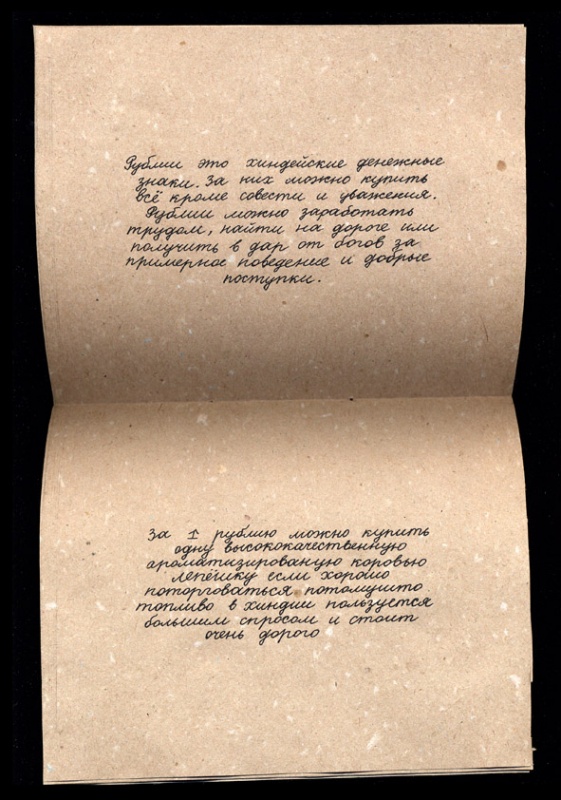 Рублии это хиндейские денежные
знаки. За них можно купить
всё кроме совести и уважения.
Рублии можно заработать
трудом, найти на дороге или
получить в дар от богов за
примерное поведение и добрые
поступки.
За 1 рублию можно купить
одну высококачественную
ароматизированую коровью
лепёшку если хорошо
поторговаться потомушто
топливо в хиндии пользуется
большим спросом и стоит
очень дорого